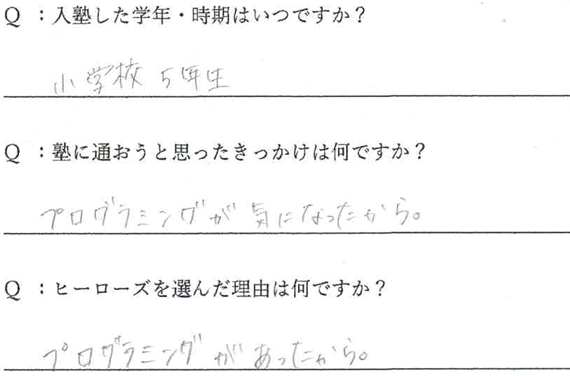 Q ：入塾した学年・時期はいつですか？
小学校 5年生
Q ：塾に通おうと思ったきっかけは何ですか？
プログラミングが気になったから。
Q ：ヒーローズを選んだ理由は何ですか？
プログラミングがあったから。